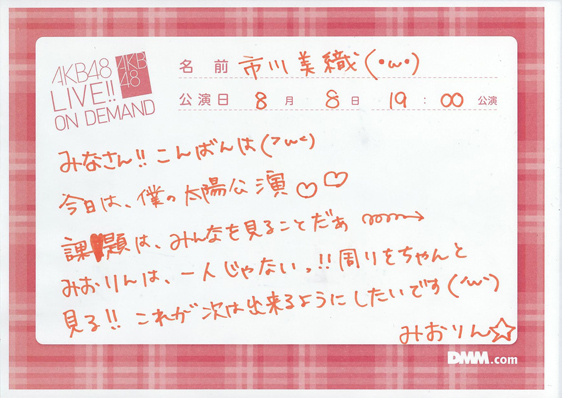 AKB48
LIVE!!
ON DEMAND
AKB
48
名前 市川美織(・ω・)
公演日 8月 8日 19:00 公演
みなさん!!こんばんは(>ω<)
今日は、僕の太陽公演♡♡
課題は、みんなを見ることだぁ
みおりんは、一人じゃないっ!!周りをちゃんと
見る!!これが次は出来るようにしたいです(^ω^)
みおりん☆
DMM.com